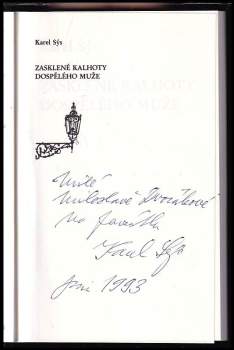 Karel Sýs
ZASKLENÉ KALHOTY
DOSPĚLÉHO MUŽE
Milé
Miloslavě Dvořákové
na památku
Karel Sýs
1993